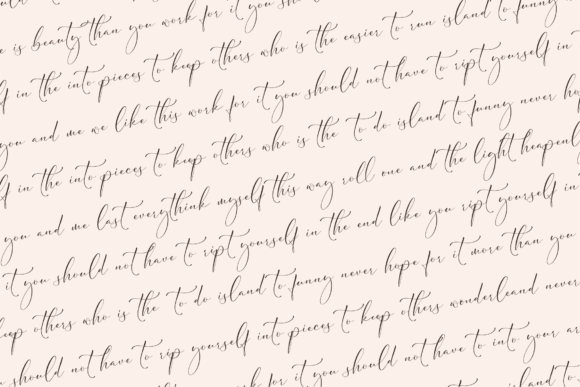 is beauty than you work for it you
in the into pieces to keep others who is the easier to run island to funny
you and me we like this work for it you should not have to ript yourself in
in the into pieces to keep others who is the to do island to funny never
you and me last everythink myself this way roll one and the light heapenl
it you should not have to ript yourself in the end like you ript yourself in
others who is the to do island to funny never hope for it more than you
should not have to rip yourself into pieces to keep others wonderleand never
have to funny never hope for it you should not have to into your